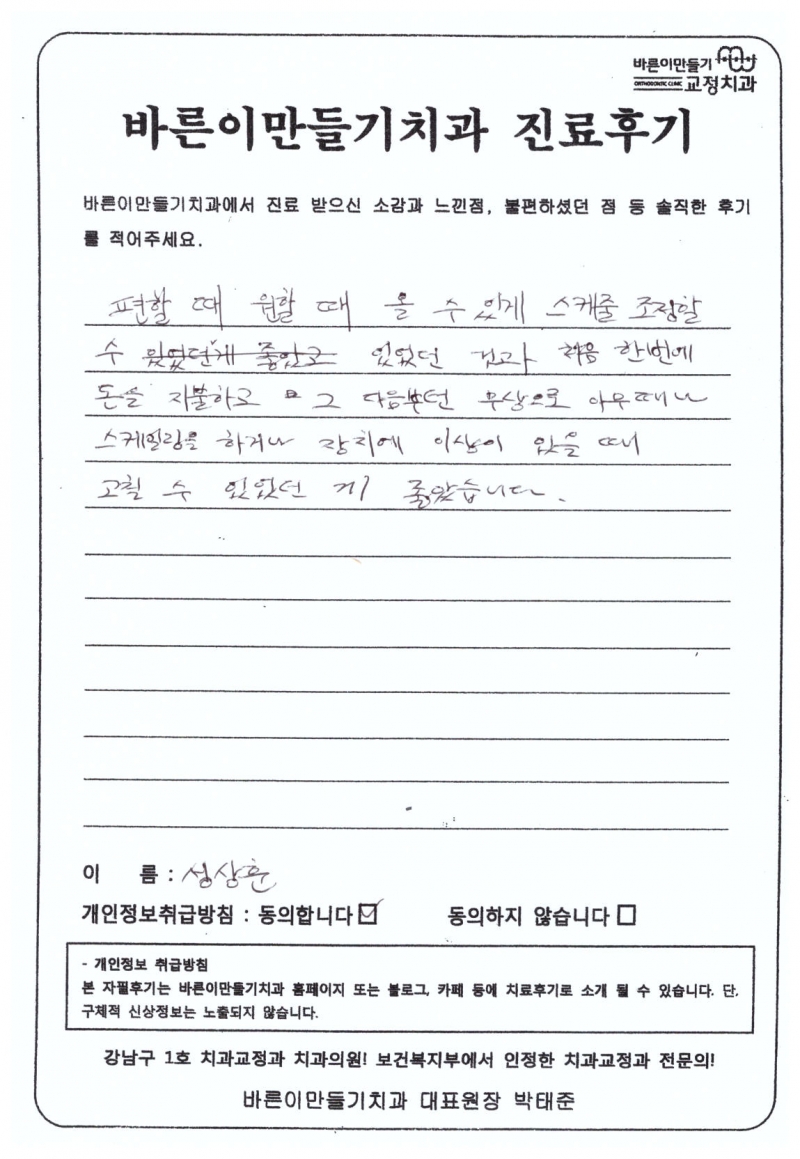 바른이만들기
ORTHODONTIC CLINIC 교정치과
바른이만들기치과 진료후기
바른이만들기치과에서 진료 받으신 소감과 느낀점, 불편하셨던 점 등 솔직한 후기
를 적어주세요.
편할 때 원할 때 올 수 있게 스케줄 조정할
수 있었던게 좋았고 있었던 것과 처음 한번에
돈을 지불하고 ㅁ 그 다음부턴 무상으로 아무때나
스케일링을 하거나 장치에 이상이 있을 때
고칠 수 있었던 게 좋았습니다.
이 름 : 성상훈
개인정보취급방침 : 동의합니다 ☑ 동의하지 않습니다 □
- 개인정보 취급방침
본 자필후기는 바른이만들기치과 홈페이지 또는 블로그, 카페 등에 치료후기로 소개 될 수 있습니다. 단,
구체적 신상정보는 노출되지 않습니다.
강남구 1호 치과교정과 치과의원! 보건복지부에서 인정한 치과교정과 전문의!
바른이만들기치과 대표원장 박태준